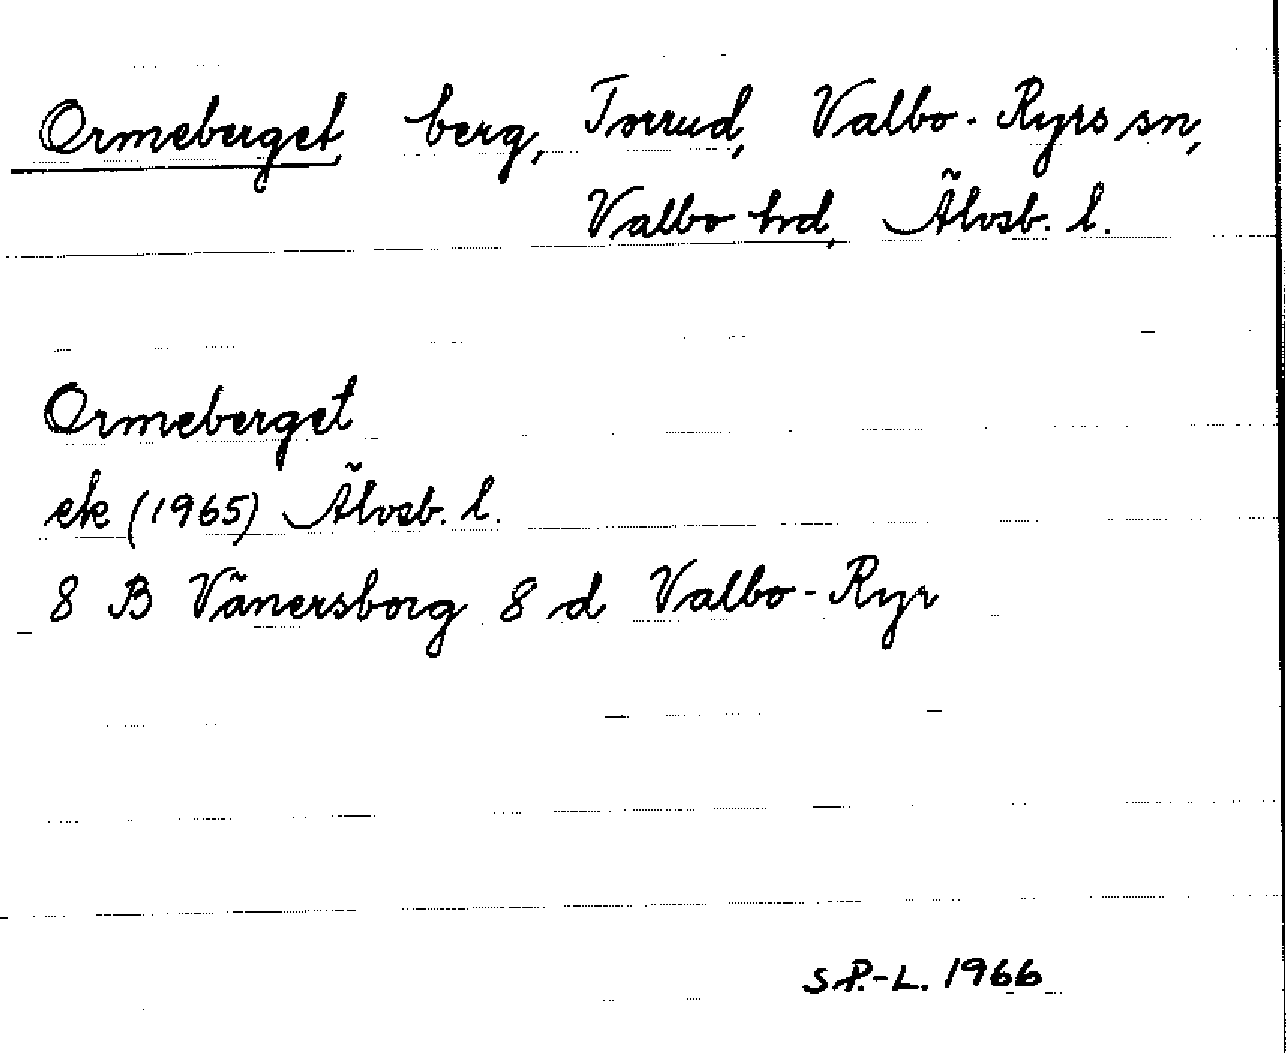 Ormeberget berg, Torrud, Valbo-Ryrs sn,
Valbo hd, Älvsb. l.
Ormeberget
ek (1965) Älvsb. l.
8 B Vänersborg 8 d Valbo-Ryr
S P.-L. 1966